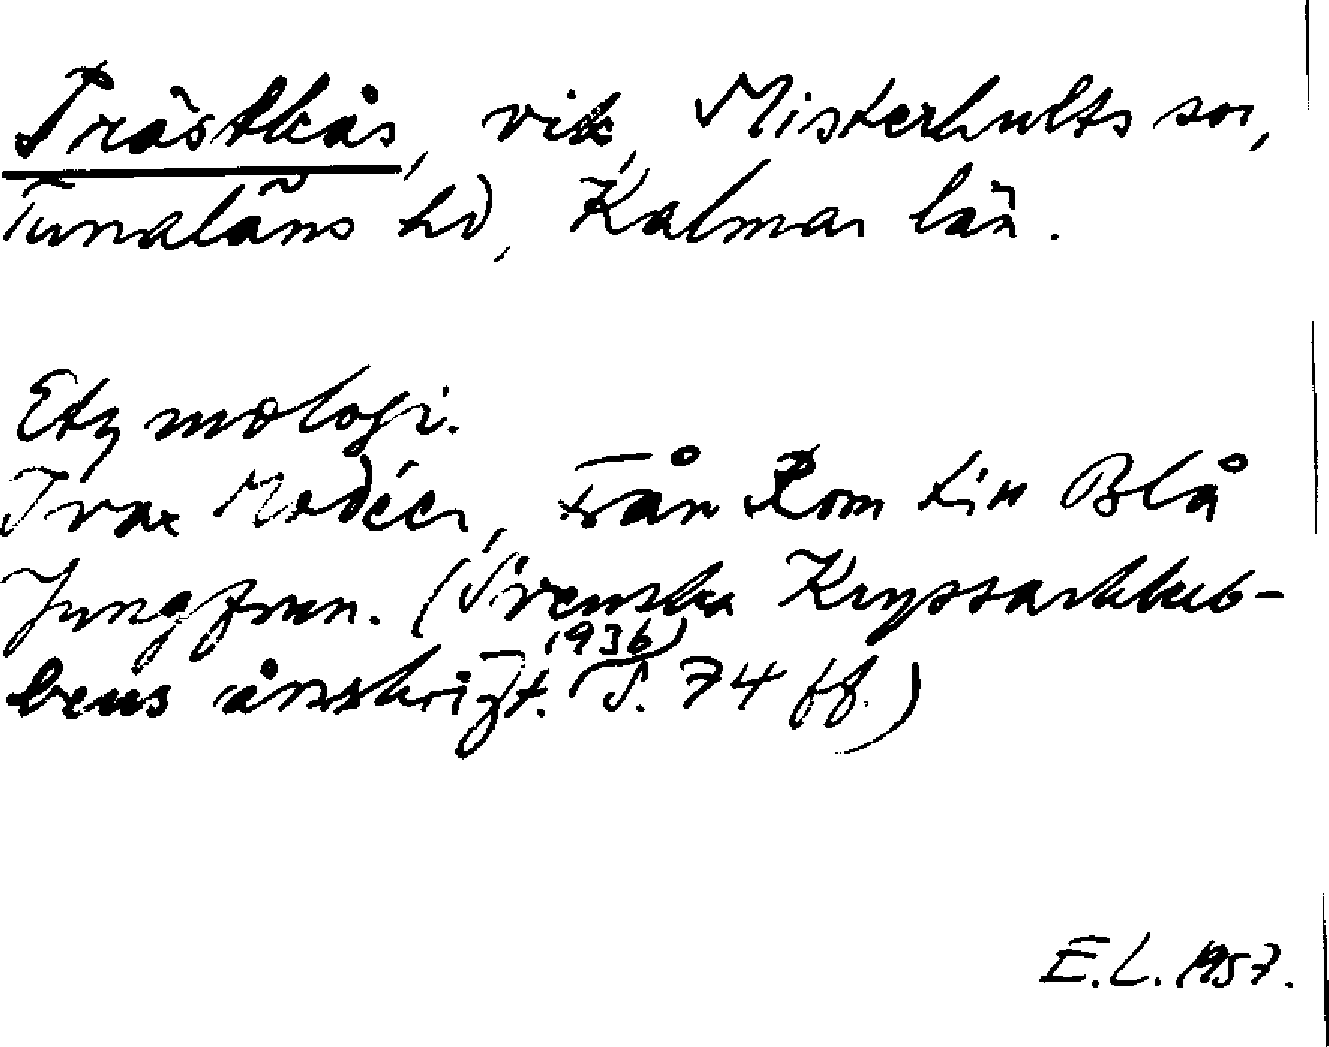 Trästkås, vik, Misterhults sn,
Tunaläns hd, Kalmar län.
Etymologi.
Ivar Modéer, Från Rom till Blå
Jungfrun. (Svenska Kryssarklub-
bens årsskrift. 1936) S. 74 ff.)
E.L. 1957.